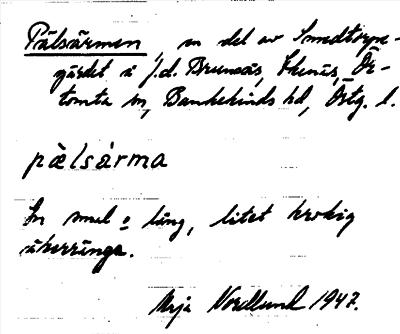 Pälsärmen, en del av Smedtorpe-
gärdet i f.d. Brunsäs, Ekenäs, Ör-
tomta sn, Bankekinds hd, Östg. l.
pälsärma
En smal o lång, litet krokig
åkerränga.
Maja Nordlund 1947.